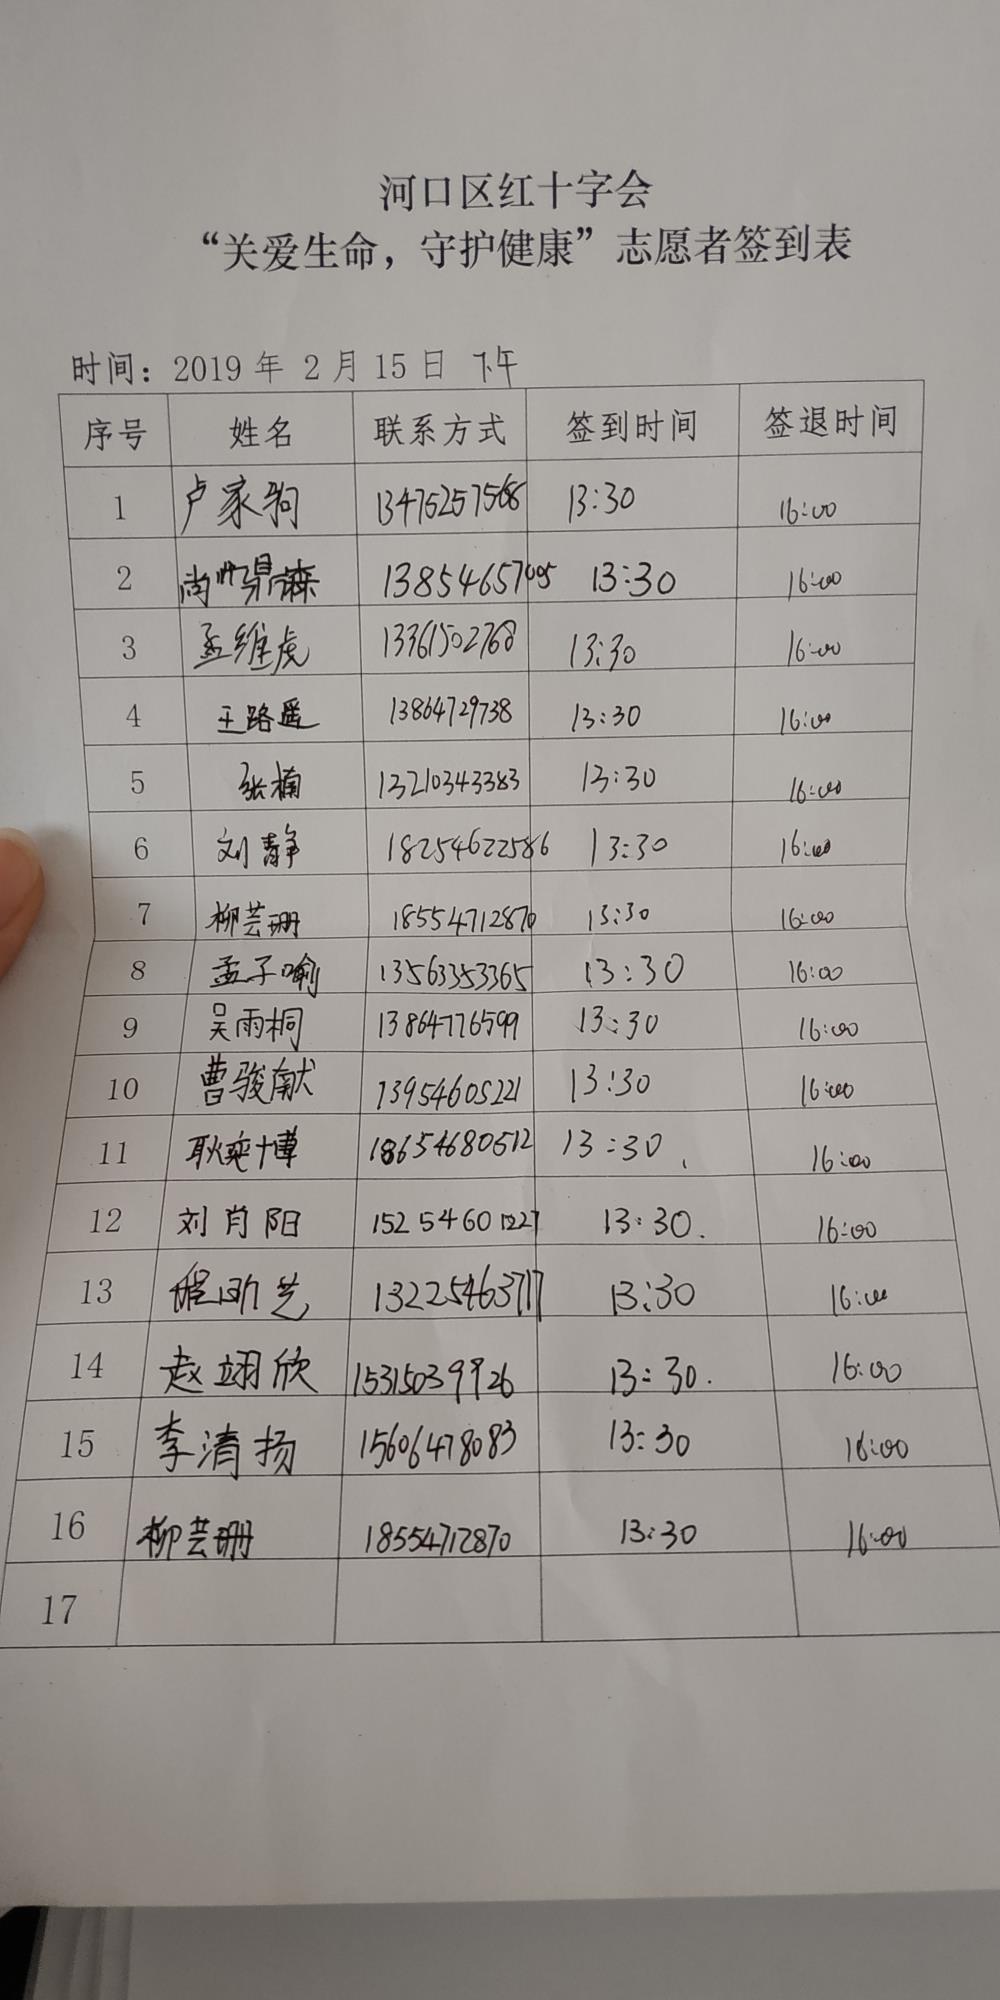 河口区红十字会
“关爱生命，守护健康”志愿者签到表
时间：2019 年 2 月 15 日 下午
序号 姓名 联系方式 签到时间 签退时间
1 卢家驹 13475257568 13:30 16:00
2 13854657095 13:30 16:00
3 孟维虎 13361502768 13:30 16:00
4 王路遥 13864729738 13:30 16:00
5 张楠 13210343383 13:30 16:00
6 刘静 18254622586 13:30 16:00
7 柳芸珊 18554712870 13:30 16:00
8 孟子喻 13563353365 13:30 16:00
9 吴雨桐 13864776599 13:30 16:00
10 曹骏献 13954605221 13:30 16:00
11 耿奕博 18654680512 13:30 16:00
12 刘肖阳 15254601227 13:30. 16:00
13 13225463717 13:30 16:00
14 赵翊欣 15315039926 13:30. 16:00
15 李清扬 15606478083 13:30 16:00
16 柳芸珊 18554712870 13:30 16:00
17